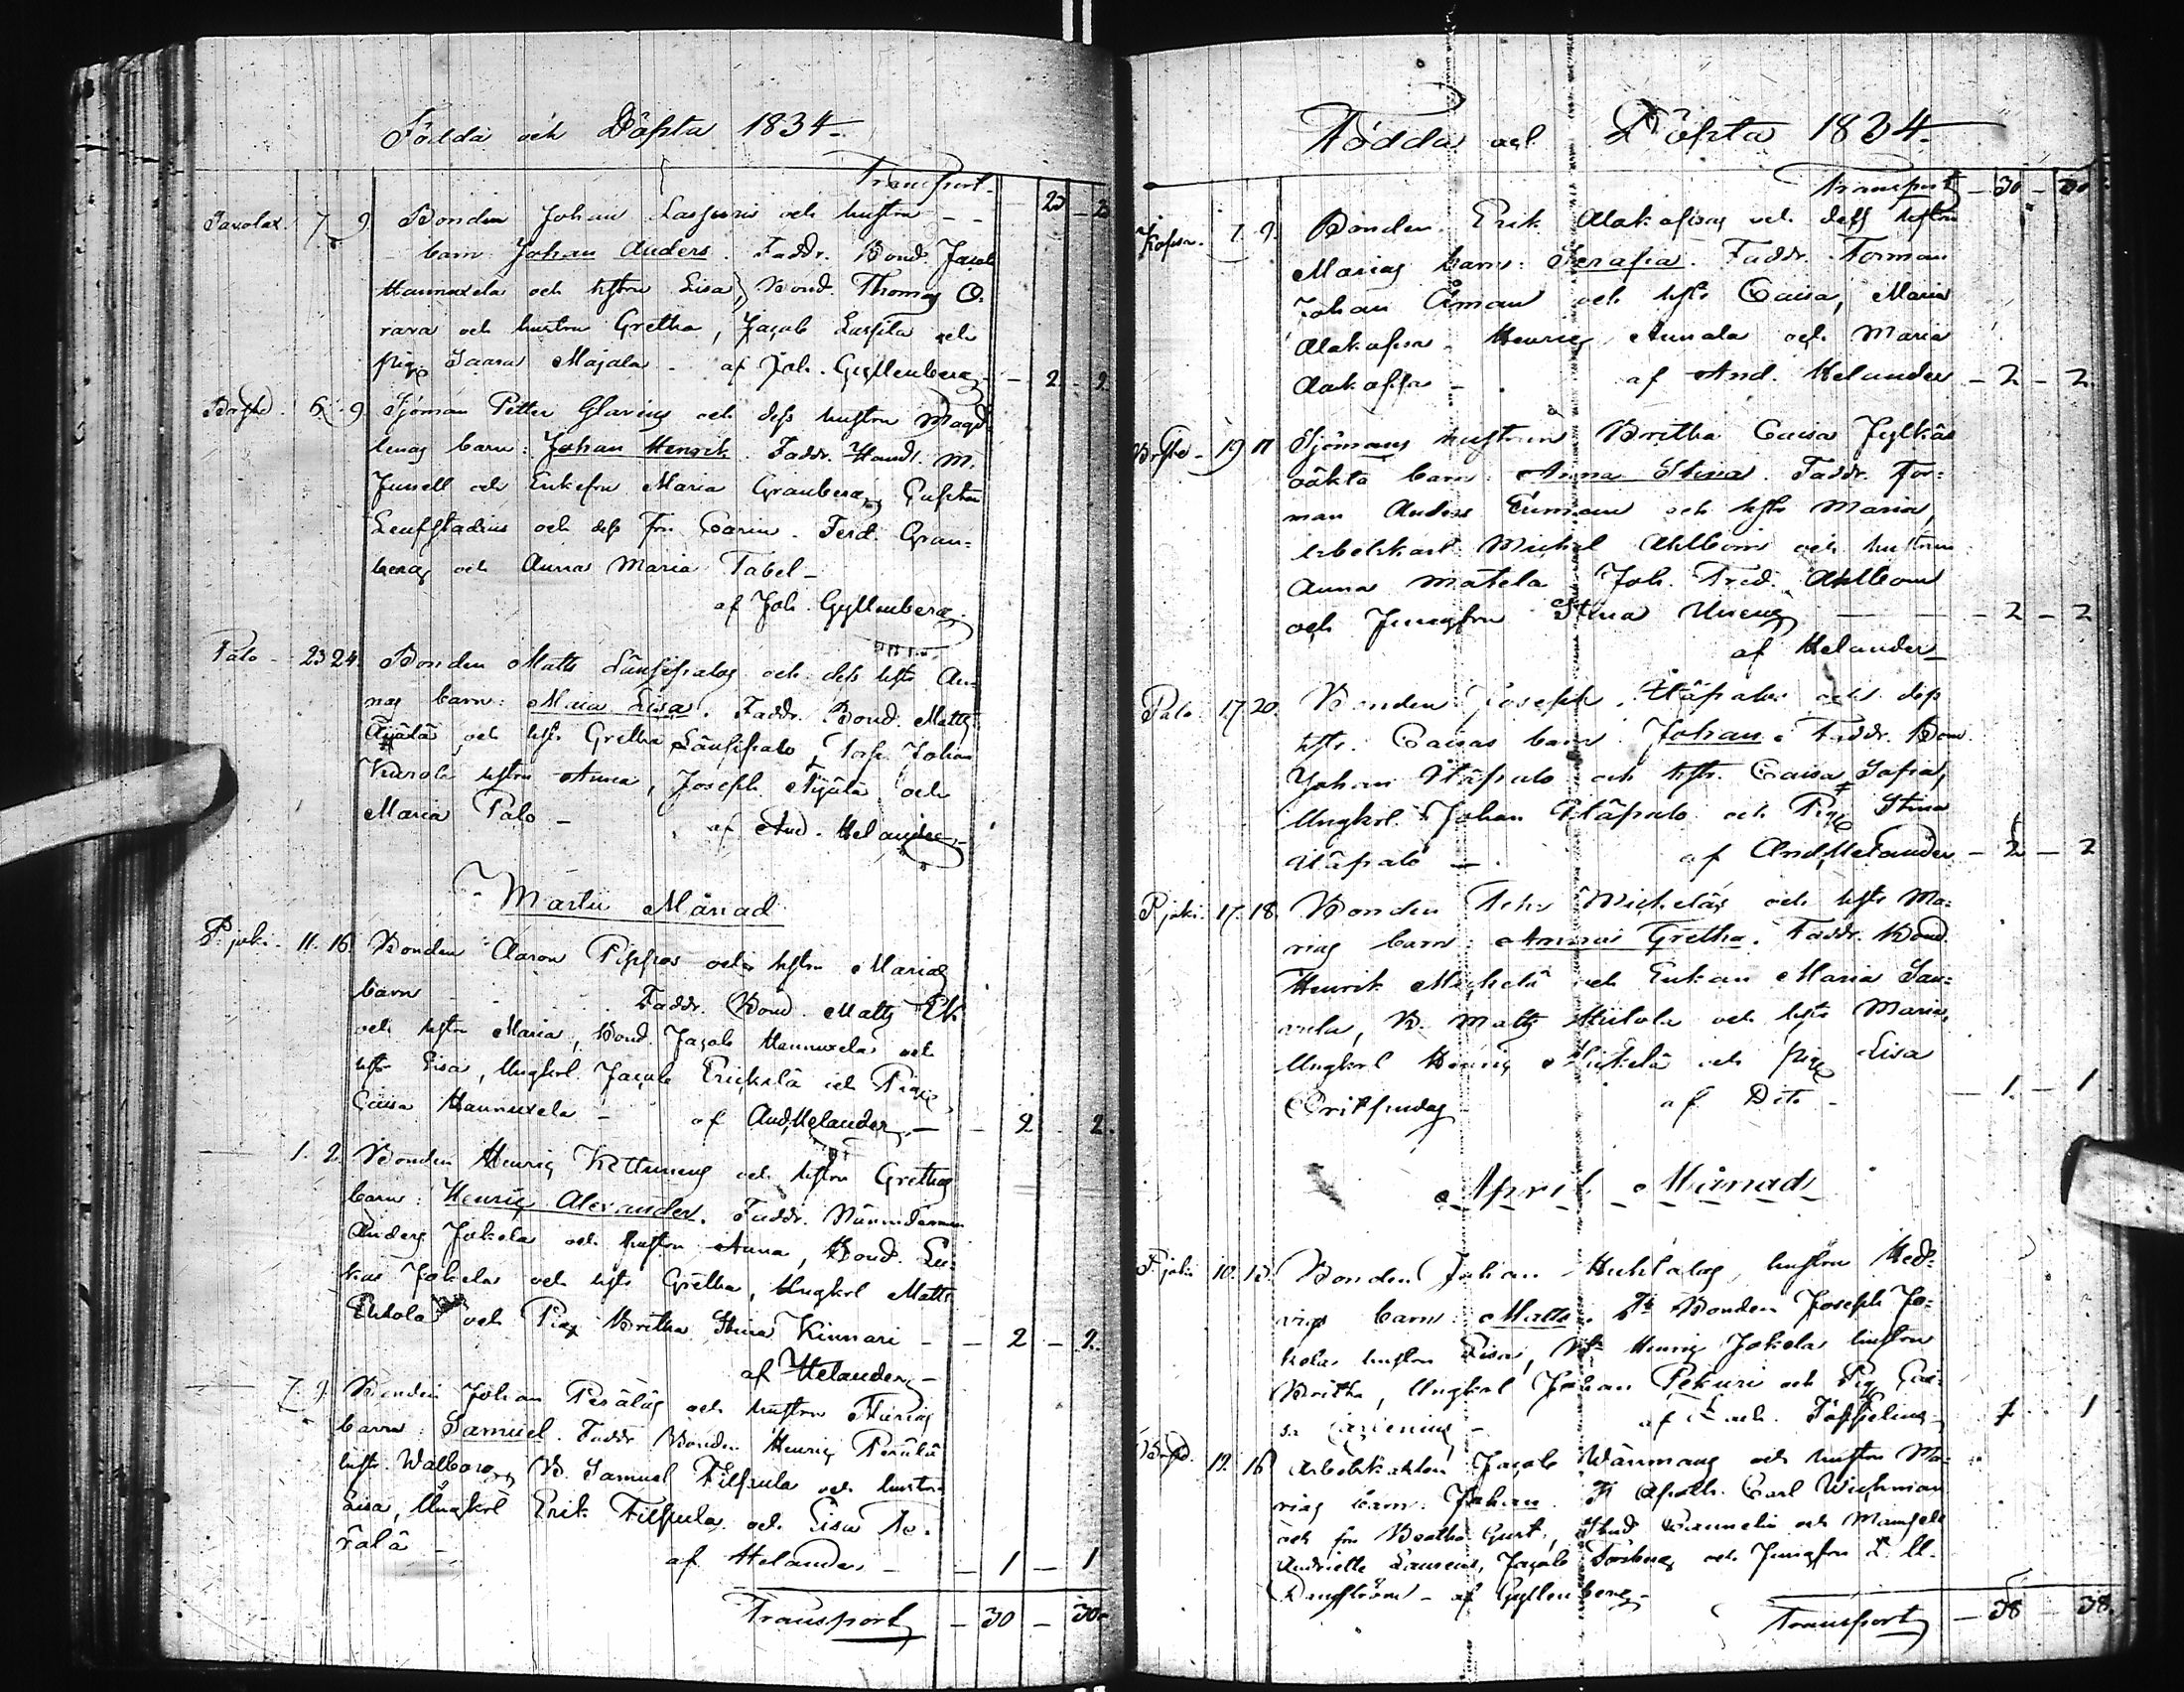 Födda och Döpta 1834.
Transport. 23 - 23
Pavolax. 7. 9. Bonden Johan Laspuris och hustru
barn Johan Anders. Faddr. Bond. Jacob
Hannuxela och hstru Lisa, Bond. Thomas O-
rava och hustru Gretha, Jacob Laspila och
pig. Saara Majala - af Joh. Gyllenberg - 2 - 2.
6. 9. Sjöman Petter Glaving och dess hustru Magd-
lenas barn: Johan Henrik. Faddr. Handl. M.
Junell och Enkefru Maria Granberg, Gustav
Leufstadius och dess fru Carin. Ferd. Gran-
berg och Anna Maria Tabel -
af Joh. Gyllenberg.
Palo - 23 24. Bonden Matts Länsipalos och dess hstr An-
nas barn: Maia Lisa. Faddr. Bond. Matts
Äijälä och hstr Gretha Länsipalo, Torp. Johan
hstru Anna, Joseph Äijälä och
Maria Palo - af And. Helander
Martii Månad
P. joki. 11. 16. Bonden Aaron Pippos och hstru Marias
barn - Faddr. Bond. Matts Ek
och hstru Maria, Bond. Jacob Hannuxela och
hstr Lisa, Ungkrl. Jacob Erickilä och Pig.
Caisa Hannuxela - af And. Helander - 2 2.
1. 2. Bonden Henric Kettunens och hstru Grethas
barn: Henric Alexander. Faddr. Nämndeman
Anders Jokela och hustru Anna, Bond. Lu-
kas Jokela och hstr Gretha, Ungkrl Matts
och Pig. Britha Stina Kinnari - 2 - 2.
af Helander -
7. 9. Bonden Johan Peräläs och hustru Marias
barn Samuel. Faddr Bonden Henric Perälä
hstr. Walborg, B. Samuel Filpula och hustru
Lisa, Ungkrl Erik Filpula och Lisa Pe-
rälä - af Helander - 1 - 1
Transport - 30 - 30.
Födda och Döpta 1834.
Transport - 30 - 30
Kopsa. 7. 9. Bonden Erik Alakopsas och dess hstru
Marias barn: Serafia. Faddr. Forman
Johan Åman och hstr Caisa, Maria
Alakopsa. Henric Annala och Maria
Alakopsa - af And. Helander - 2 - 2
19 Sjömans hustrun Britha Caisa Jylkäs
oäkta barn Anna Stina. Faddr. For-
man Anders och hstr Maria,
arbetskarl Michel Ahlbom och hustrun
Anna Matela Joh. Fred. Ahlbom
och Jungfru Stina - 2 - 2
af Helander -
Palo 17. 20. Bonden Joseph Ytäpalos och dess
hstr. Caisas barn Johan. Faddr. Bon.
Johan Ytäpalo och hstr. Caisa Sofia,
Ungkrl. Johan Ytäpalo och Pig. Stina
Ytäpalo - af And. Helander - 2 - 2
P. joki. 17. 18. Bonden Micheläs och hstr Ma-
rias barn: Anna Gretha. Faddr. Bond.
Henrik Michelä och Enkan Maria Sau-
vula, B. Matts och hstr Maria,
Ungkrl Henric Michelä och Pig. Lisa
af Dito - 1. - 1
April Månad
P. joki 10. 13. Bonden Johan Huhtalas hustru Hed-
vigs barn: Matts. Fr Bonden Joseph Jo-
kelas hustru Lisa, Bd Henric Jokelas hustru
Britha, Ungkrl Johan Pekuri och Pig. Cai-
sa - af Töppelius - 1 1
12. 16 Arbetskarlen Jacob Wärmans och hustru Ma-
rias barn: Johan. Fr Apoth. Carl Wichman
och fru Beatha Gust., Stud Wännelin och Mamsell
Andriette Laurens, Jacob Forsberg och Jungfru L. U.
- af Gyllenberg -
Transport - 38 - 38.